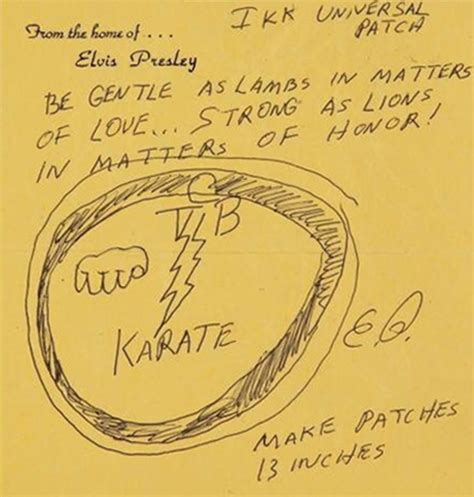 From the home of . . .
Elvis Presley
IKK UNIVERSAL
PATCH
BE GENTLE AS LAMBS IN MATTERS
OF LOVE... STRONG AS LIONS
IN MATTERS OF HONOR!
TCB
KARATE
E.P.
MAKE PATCHES
13 INCHES